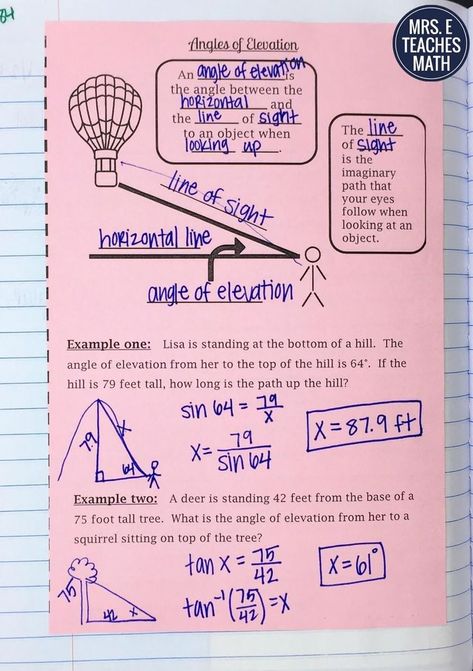 MRS. E
TEACHES
MATH
Angles of Elevation
An angle of elevation is
the angle between the
horizontal and
the line of sight
to an object when
looking up.
The line
of sight
is the
imaginary
path that
your eyes
follow when
looking at an
object.
line of sight
horizontal line
angle of elevation
Example one: Lisa is standing at the bottom of a hill. The
angle of elevation from her to the top of the hill is 64°. If the
hill is 79 feet tall, how long is the path up the hill?
79
x
64
sin 64 = 79/x
x = 79/sin 64
x = 87.9 ft
Example two: A deer is standing 42 feet from the base of a
75 foot tall tree. What is the angle of elevation from her to a
squirrel sitting on top of the tree?
75
42
x
tan x = 75/42
tan⁻¹(75/42) = x
x = 61°